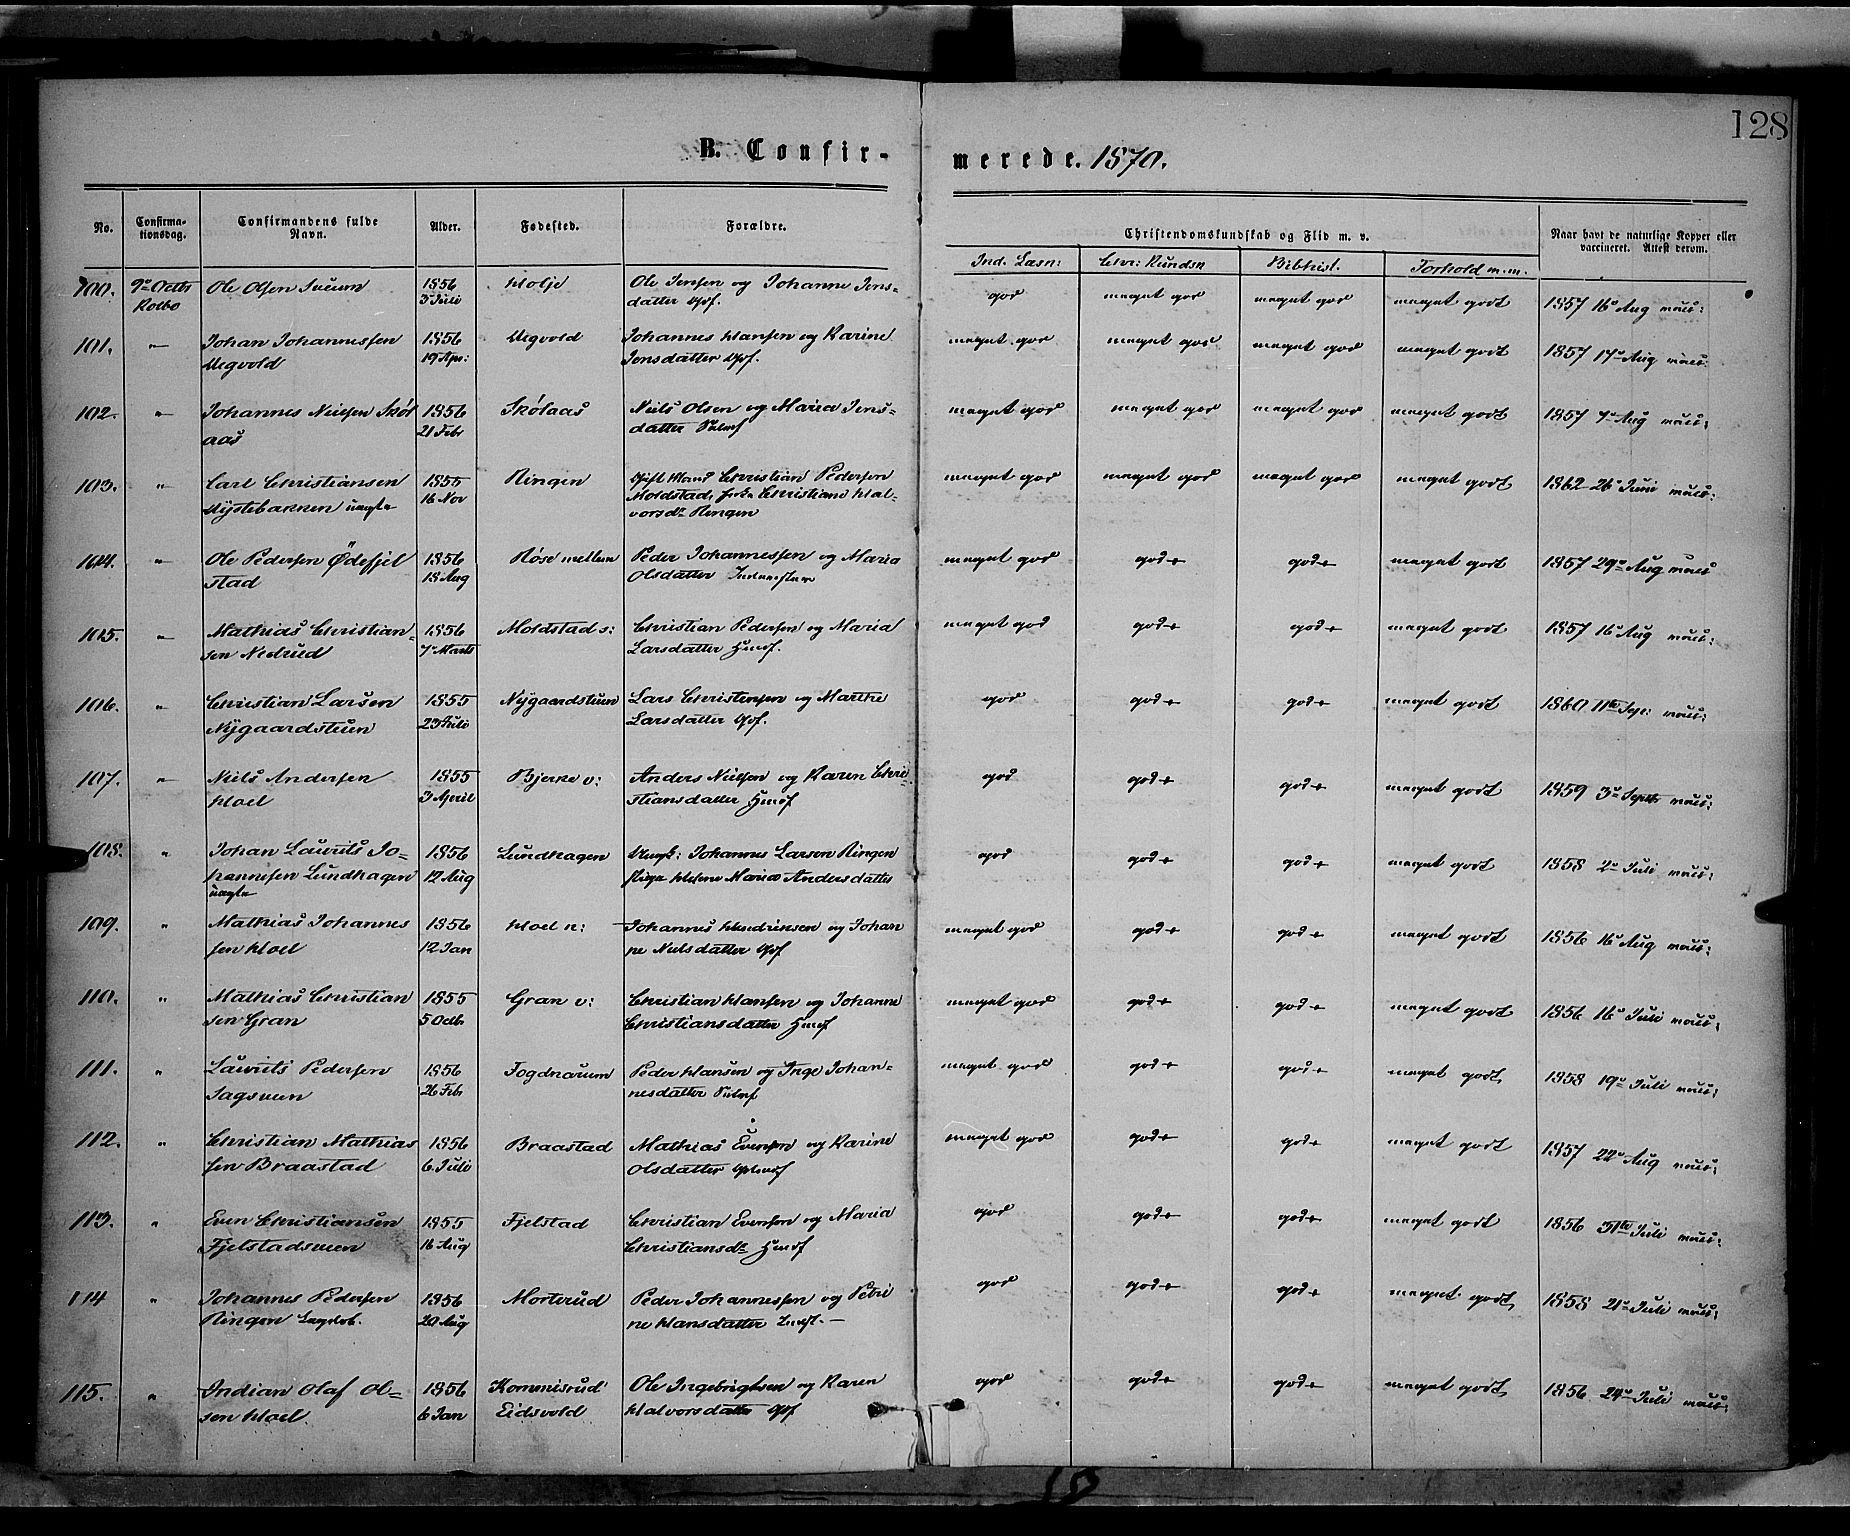 128
B. Confir-
merede. 1870.
No.
Confirma-
tionsdag.
Confirmandens fulde
Navn.
Alder.
Fødested.
Forældre.
Christendomskundskab og Flid m. v.
Naar havt de naturlige Kopper eller
vaccineret. Attest derom.
Ind. Læsn:
Chr: Kundsk
Bibhist.
Forhold m. m.
100. 9de Octbr Ole Olsen Sveum 1856 Ole Jensen og Johanne Jens-
Kolbo 3 Juli datter Gpf.
god meget god meget god meget godt 1857 16 Aug
101. " Johan Johannessen 1856 Johannes Hansen og Karine
19 Apr: Jonsdatter Gpf.
meget god meget god meget god meget godt 1857 17 Aug
102. " Johannes Nielsen Skøl 1856 Skølaas Niels Olsen og Maria Jens-
aas 21 Febr datter
meget god meget god meget god meget godt 1857 7 Aug
103. " Carl Christiansen 1855 Ringen Gift Mand Christian Pedersen
Nystebakken uægte 16 Nov Moldstad, Christiane Hal-
vorsdr Ringen
meget god meget god meget god meget godt 1862 26 Juni
104. " Ole Pedersen Ödefjel 1856 Røse mellem Peder Johannessen og Maria
stad 18 Aug Olsdatter
meget god god+ god+ meget godt 1857 29 Aug
105. " Mathias Christian- 1856 Moldstad s: Christian Pedersen og Maria
sen Nedrud 7 Marts Larsdatter Husf.
meget god god+ god+ meget godt 1857 16 Aug
106. " Christian Larsen 1855 Nygaardstuen Lars Christensen og Marthe
Nygaardstuen 23 Juli Larsdatter Gpf.
god god+ god+ meget godt 1860 11te Sep:
107. " Niels Andersen 1855 Bjerke v: Anders Nielsen og Karen Chri-
Hoel 3 April stiansdatter Husf
god god+ god+ meget godt 1859 3 Septb
108. " Johan Laurits Jo- 1856 Lundhagen Ungk: Johannes Larsen Ringen
hannesen Lundhagen 12 Aug Pige Helene Maria Andersdatter
uægte
god god+ god+ meget godt 1858 2 Juli
109. " Mathias Johannes 1856 Hoel n: Johannes Hendriksen og Johan
sen Hoel 12 Jan ne Nielsdatter Gpf
meget god god+ god+ meget godt 1856 16 Aug
110. " Mathias Christian 1855 Gran v: Christian Hansen og Johanne
sen Gran 5 Octb. Christiansdatter Husf
meget god god+ god+ meget godt 1856 16 Juli
111. " Laurits Pedersen 1856 Fogdnarum Peder Hansen og Inge Johan-
Sagsveen 26 Febr nesdatter
meget god god+ god+ meget godt 1858 19 Juli
112. " Christian Mathias 1856 Braastad Mathias Evensen og Karine
sen Braastad 6 Juli Olsdatter
meget god god+ god+ meget godt 1857 22 Aug
113. " Even Christiansen 1855 Fjelstad Christian Evensen og Maria
Fjelstadsveen 16 Aug Christiansdr Husf
god god+ god+ meget godt 1856 31te Juli
114 " Johannes Pedersen 1856 Morterud Peder Johannessen og Petri
Ringen 20 Aug ne Hansdatter
god god+ god+ meget godt 1858 21 Juli
115. " Indian Olaf Ol- 1856 Kommisrud Ole Ingebrigtsen og Karen
sen Hoel. 6 Jan Eidsvold Halvorsdatter Gpf
god god+ god+ meget godt 1856 24 Juli